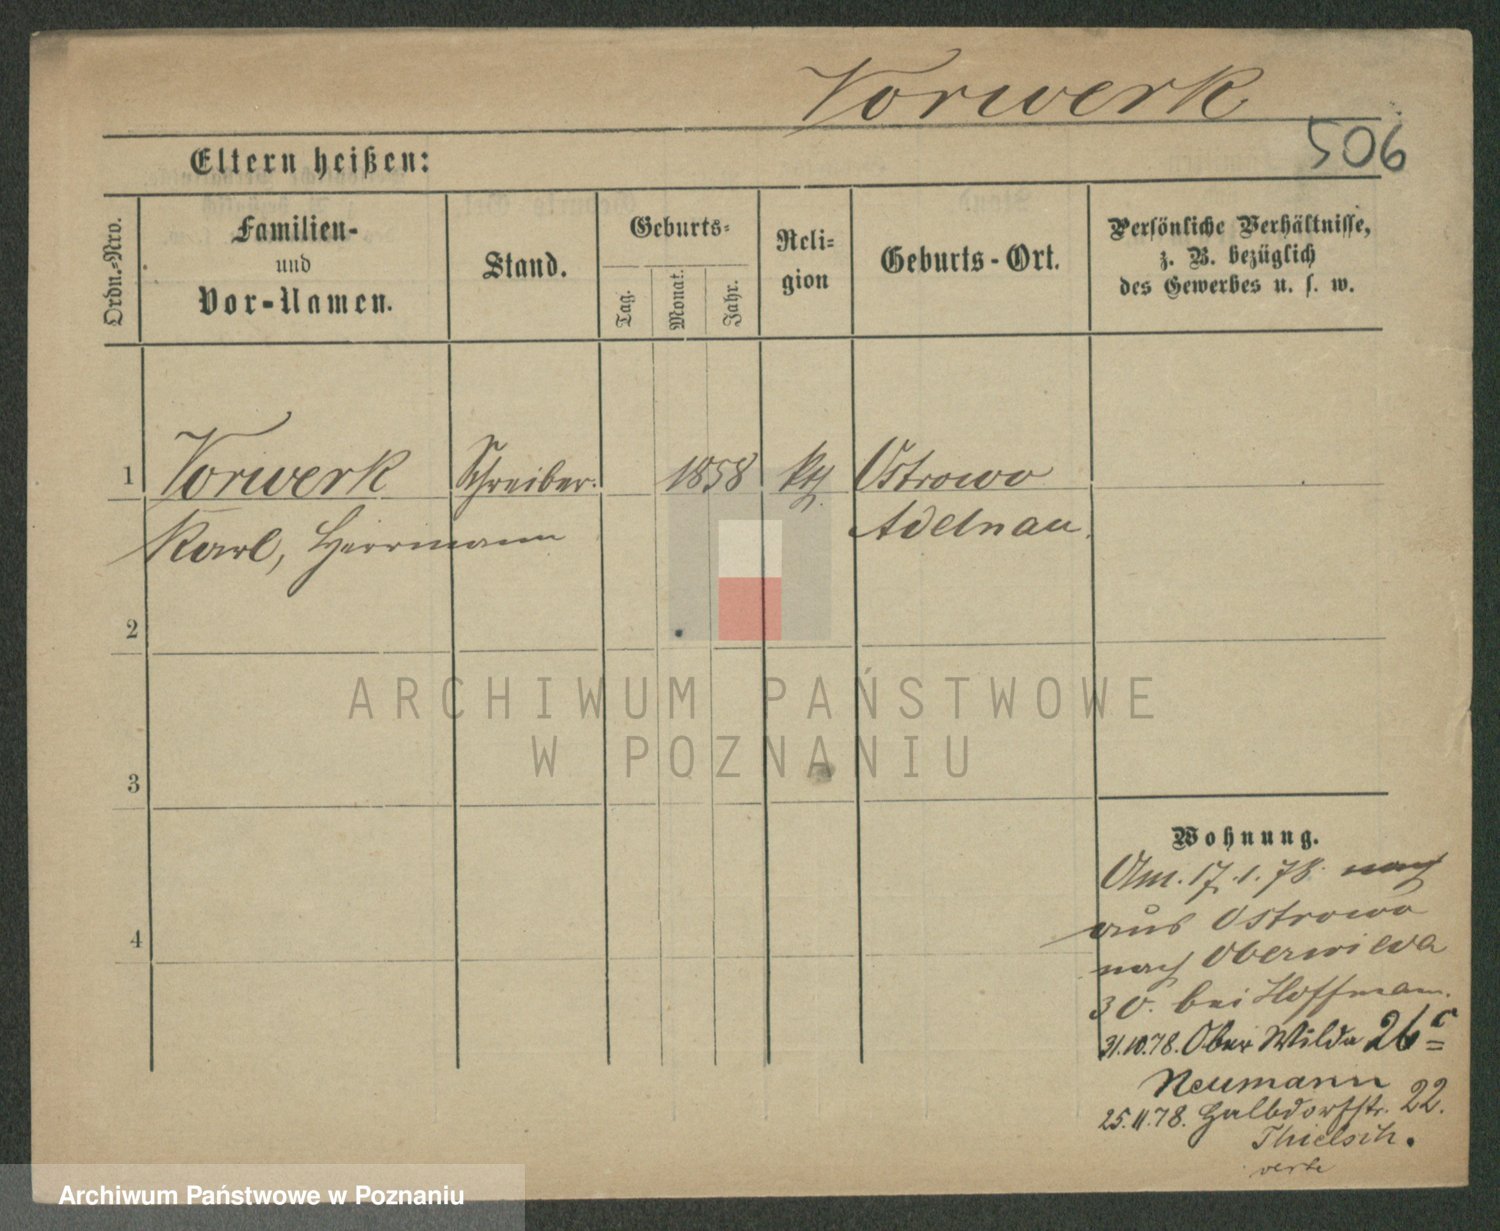 Vorwerk
506
Eltern heißen:
Ordn.-Nro.
Familien-
und
Vor-Namen.
Stand.
Geburts-
Tag.
Monat.
Jahr.
Reli-
gion
Geburts-Ort.
Persönliche Verhältnisse,
z. B. bezüglich
des Gewerbes u. s. w.
1 Vorwerk Schreiber. 1858 kth. Ostrowo
Karl, Herrmann Adelnau.
2
3
4
Wohnung.
Am. 17.1.78. nach
aus Ostrowo
nach Oberwilda
30. bei Hoffmann.
31.10.78. Ober Wilda 26c
Neumann
25.11.78. Halbdorfstr. 22.
Thielsch.
ARCHIWUM PAŃSTWOWE
W POZNANIU
Archiwum Państwowe w Poznaniu